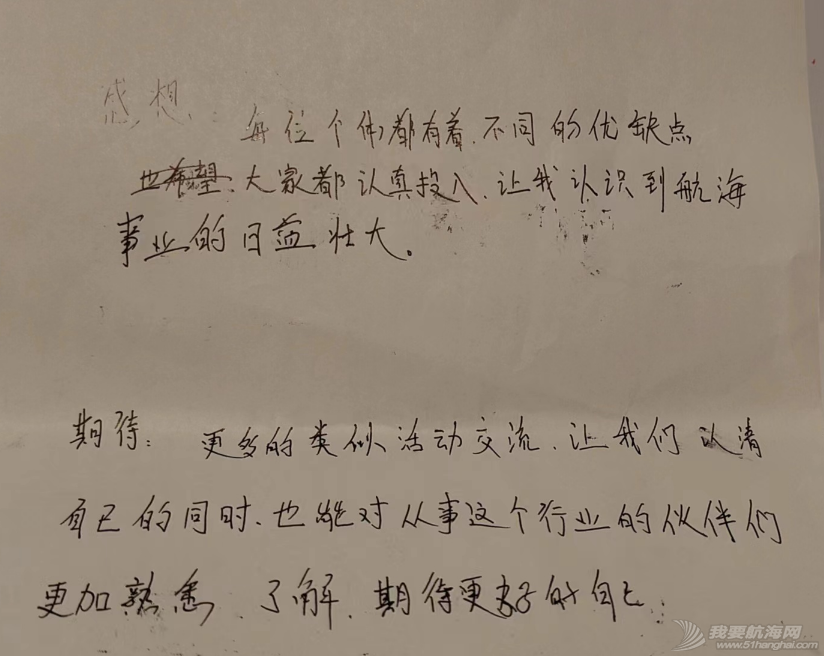 感想：每位个体都有着、不同的优缺点
也希望、大家都认真投入、让我认识到航海
事业的日益壮大。
期待：更多的类似活动交流、让我们认清
自己的同时、也能对从事这个行业的伙伴们
更加熟悉、了解、期待更好的自己
我要航海网
www.51hanghai.com